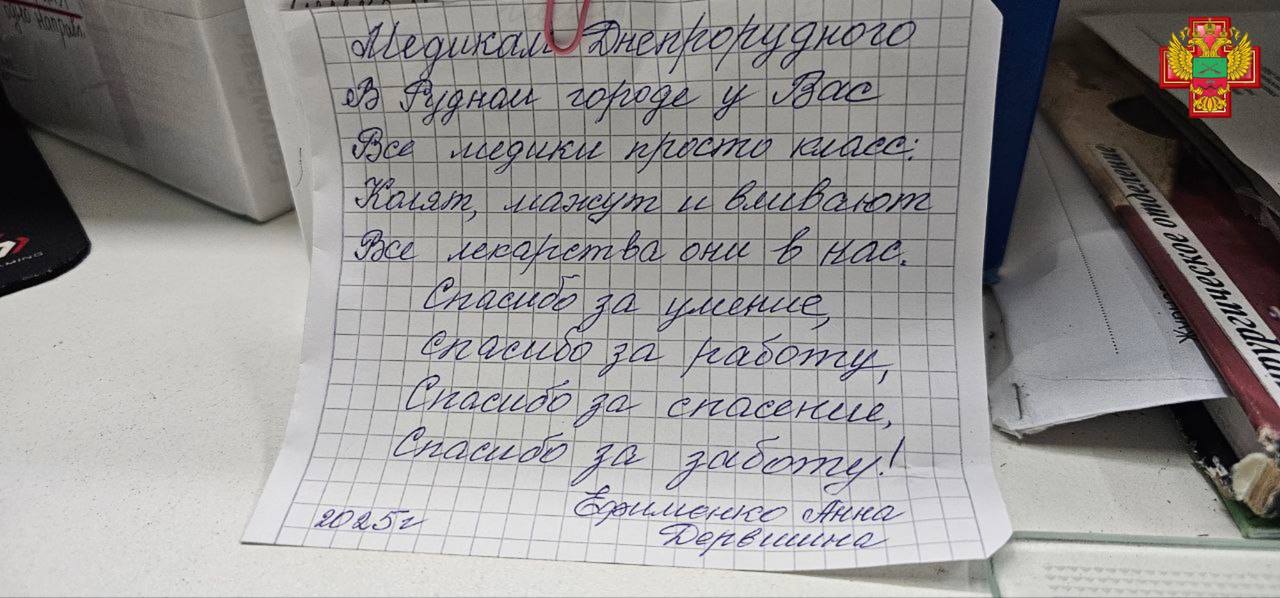 одно направл.
Медикам Днепрорудного
В Рудном городе у Вас
Все медики просто класс:
Колят, мажут и вливают
Все лекарства они в нас.
Спасибо за умение,
спасибо за работу,
Спасибо за спасение,
Спасибо за заботу!
2025г
Ефименко Анна
Дервишина
рургическое отделение
GAMING